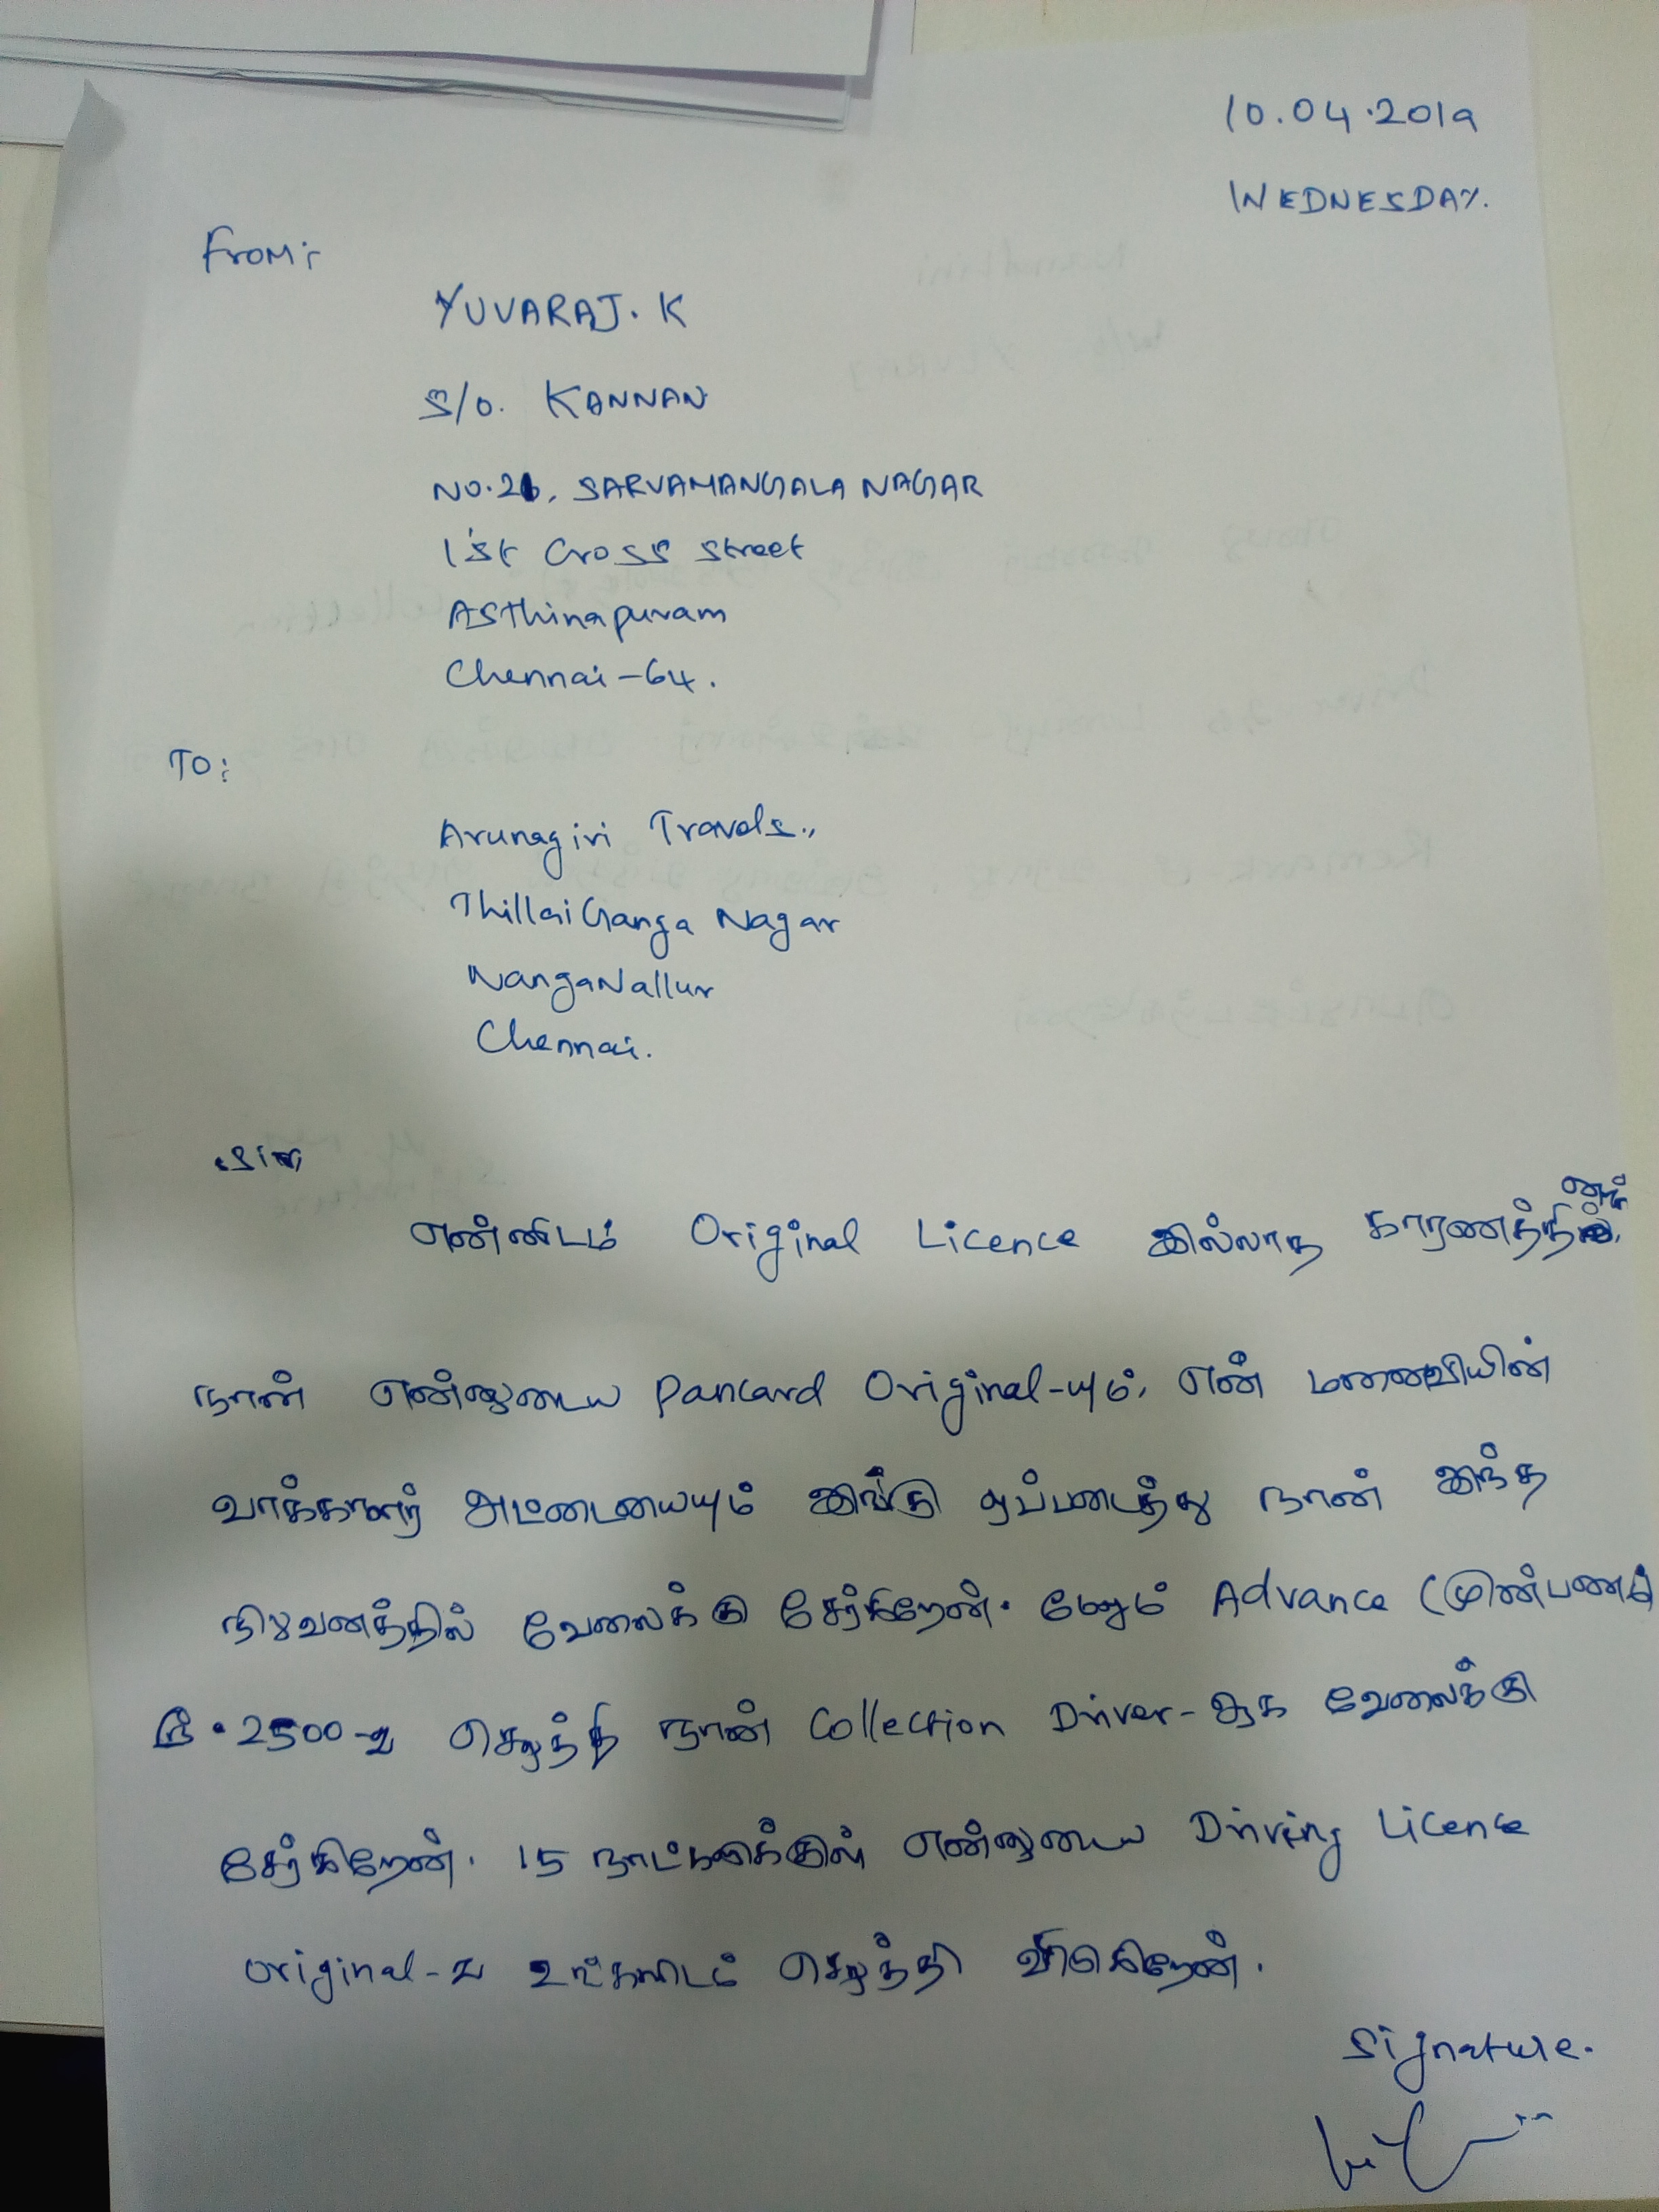 10.04.2019
WEDNESDAY.
From:
YUVARAJ. K
S/o. KANNAN
NO.26, SARVAMANGALA NAGAR
1st Cross Street
Asthinapuram
Chennai-64.
TO:
Arunagiri Travels.,
Thillai Ganga Nagar
NangaNallur
Chennai.
Sir,
என்னிடம் Original Licence இல்லாத காரணத்தினால்
நான் என்னுடைய Pancard Original-யும், என் மனைவியின்
வாக்காளர் அட்டையையும் இங்கு ஒப்படைத்து நான் இந்த
நிறுவனத்தில் வேலைக்கு சேர்கிறேன். மேலும் Advance (முன்பணம்)
ரூ.2500-ஐ செலுத்தி நான் Collection Driver-ஆக வேலைக்கு
சேர்கிறேன். 15 நாட்களுக்குள் என்னுடைய Driving Licence
original-ஐ உங்களிடம் செலுத்தி விடுகிறேன்.
Signature.